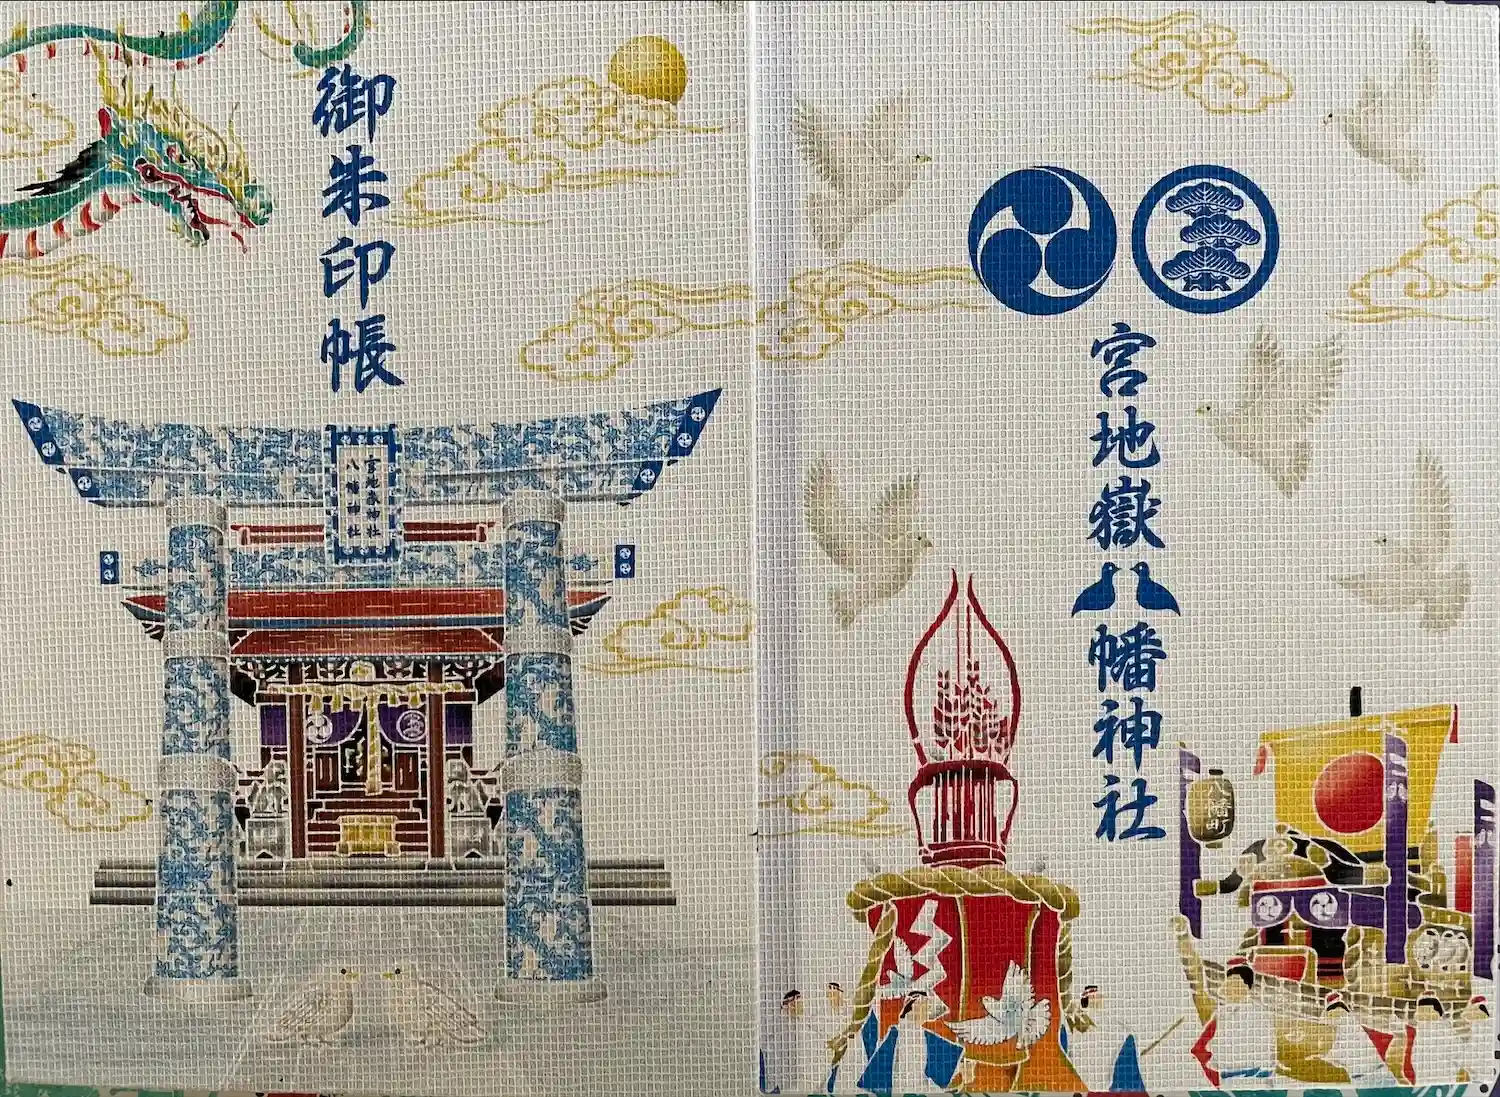 宮地嶽八幡神社
八幡町
御朱印帳
宮地嶽神社
八幡神社